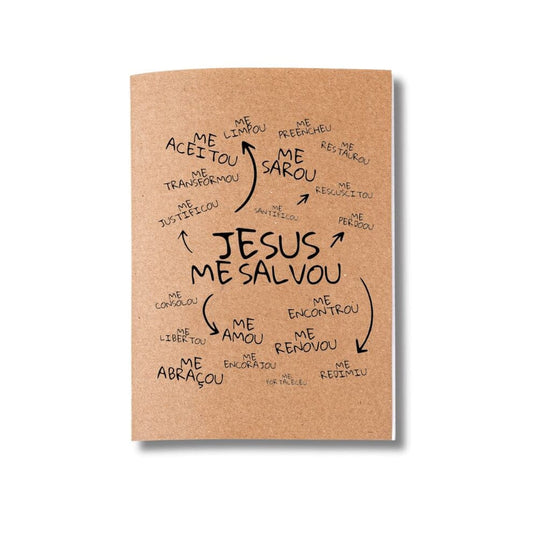 ME
LIMPOU
ME
PREENCHEU
ME
ACEITOU
ME
RESTAUROU
ME
SAROU
ME
TRANSFORMOU
ME
RESCUSCITOU
ME
JUSTIFICOU
ME
SANTIFICOU
ME
PERDOOU
JESUS
ME SALVOU
ME
CONSOLOU
ME
ENCONTROU
ME
LIBERTOU
ME
AMOU
ME
RENOVOU
ME
ABRAÇOU
ME
ENCORAJOU
ME
FORTALECEU
ME
REDIMIU